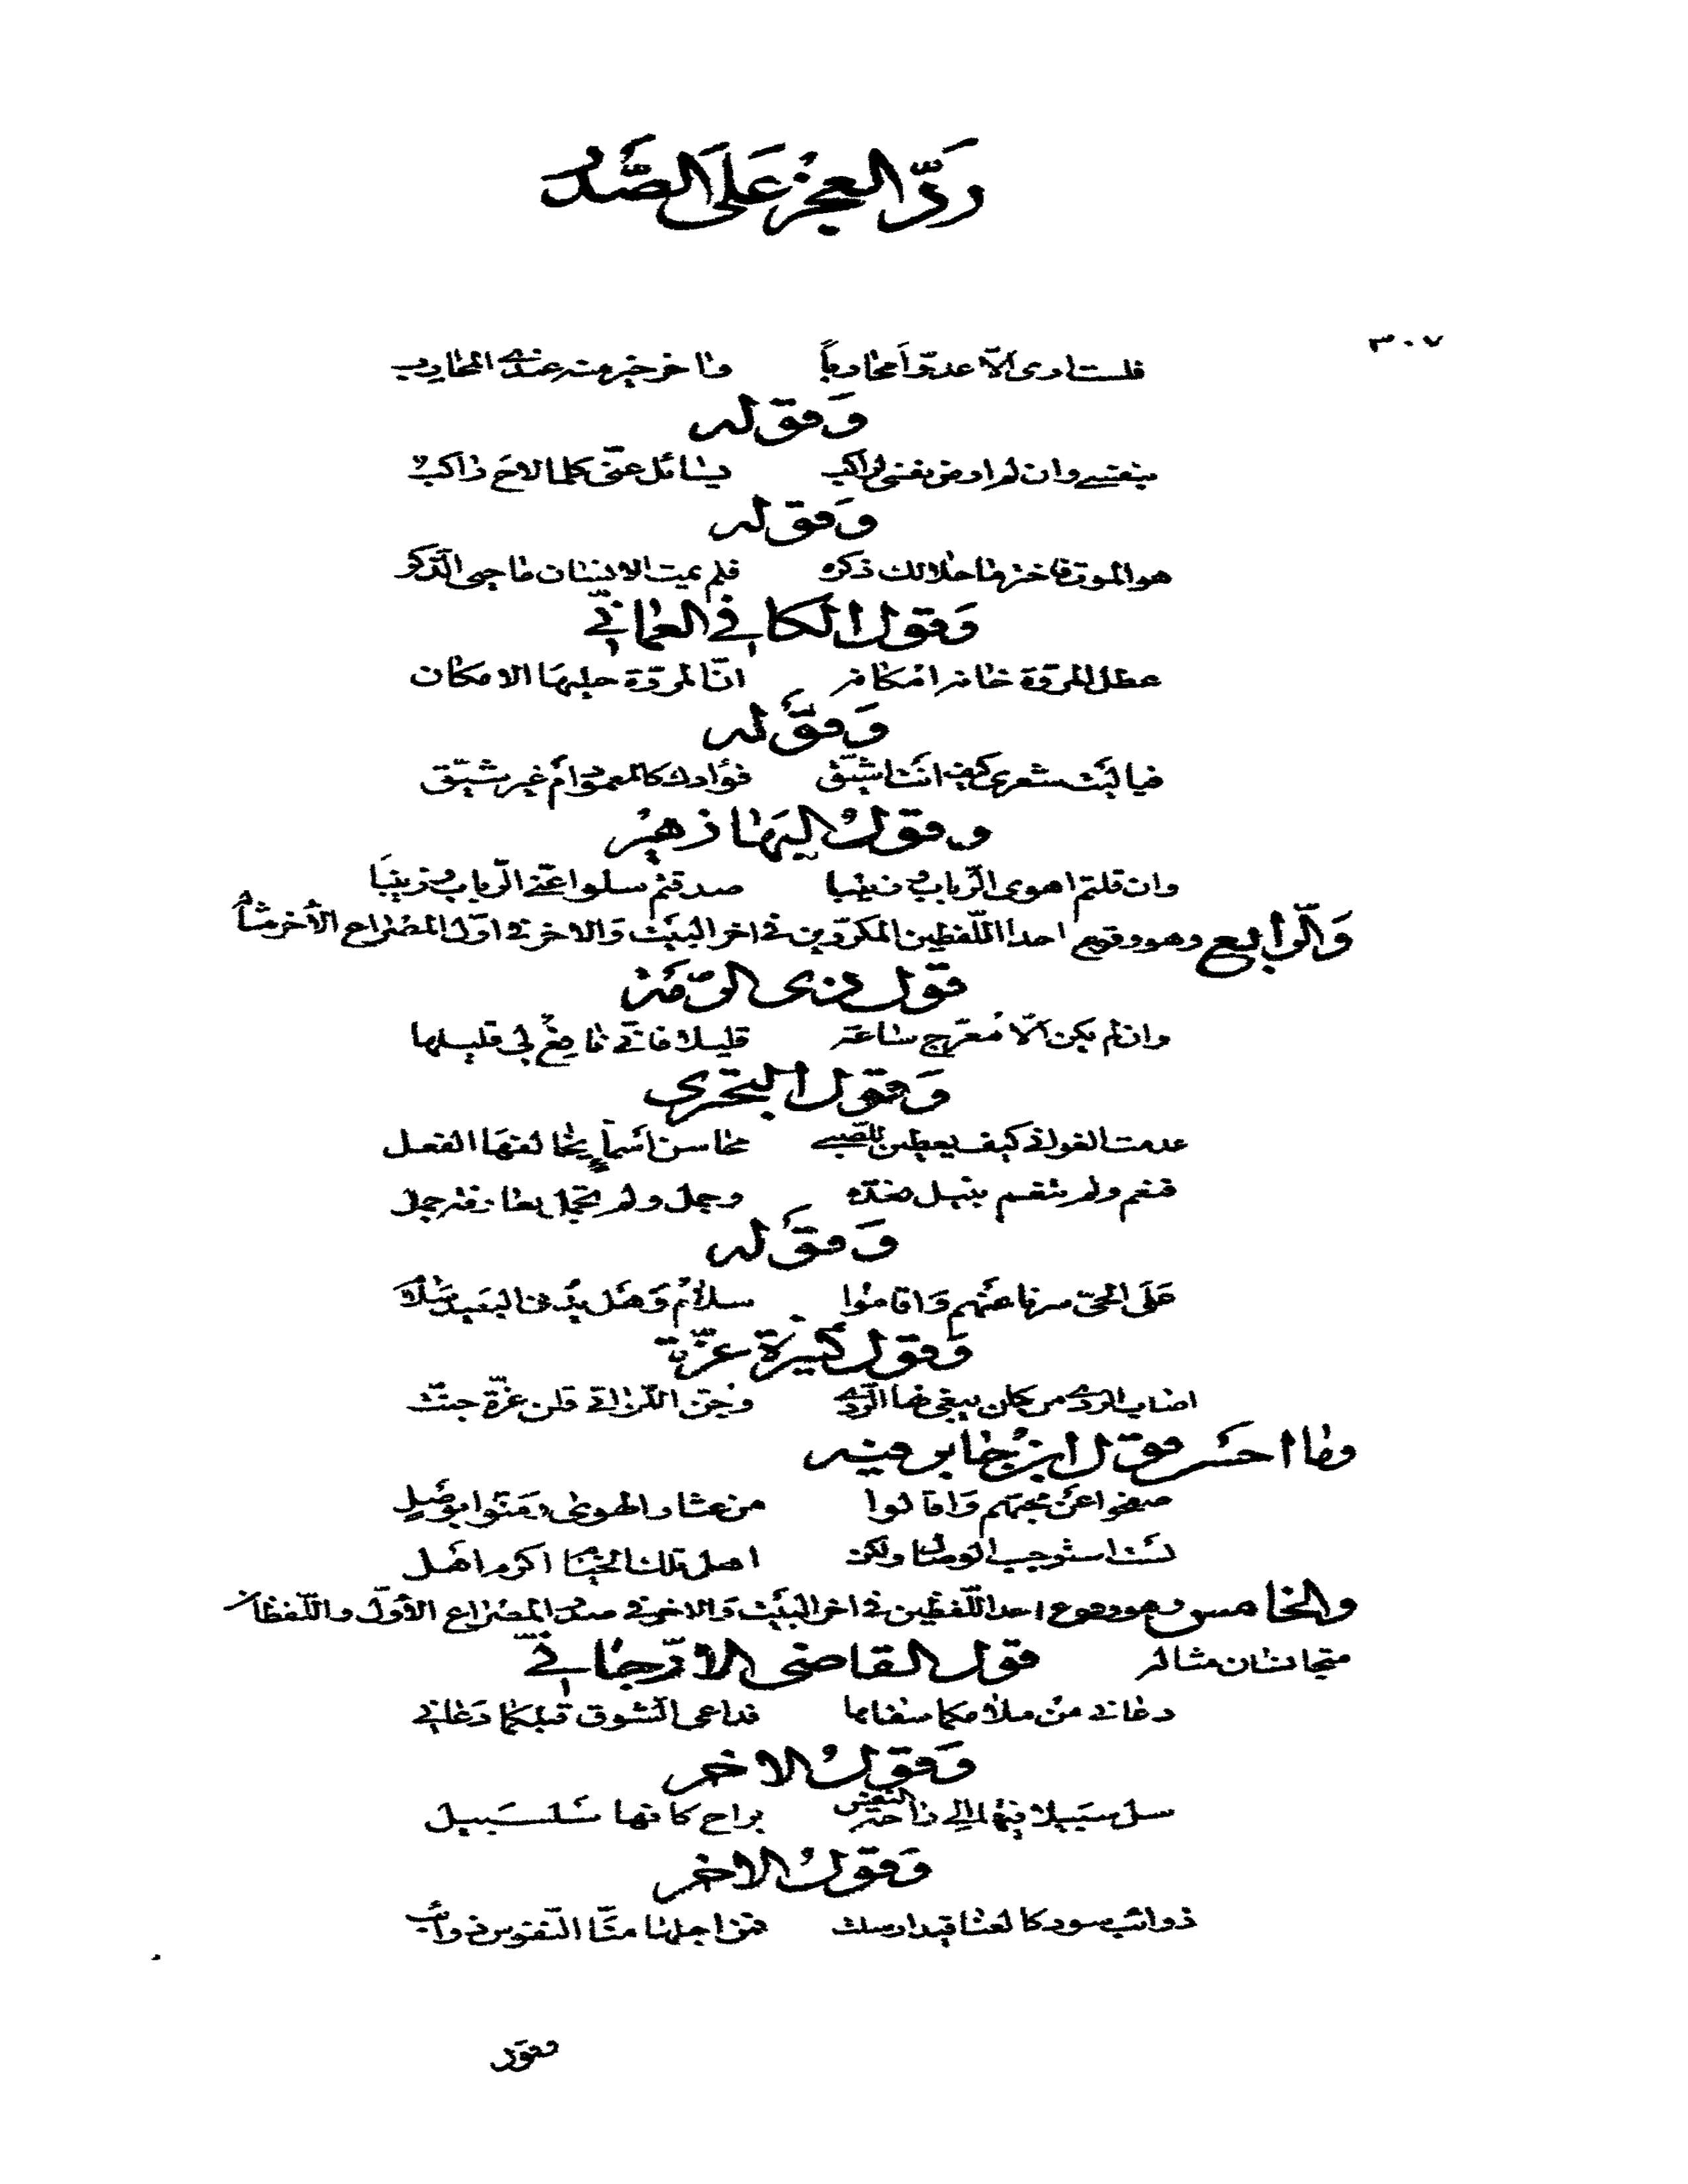 ردّ العجز على الصّدر
٣٠٧
فلست ارى الّا عدوّا محاربا وا خر خير منه عندى المحارب
وقوله
بنفسے وان لم ارض نفسى لراكب يسائل عنّى كلما لاح راكب
وقوله
هو الموت فاختر ما علا لك ذكره فلم يمت الانسان ما حيى الذّكر
وقول الكافي العمانيّ
عطل المروّة خانه امكانه انّ المروّة حليها الامكان
وقوله
فيا ليت شعرى كيف انت اشيّق فؤادك كالمعمود أم غير شيّق
وقول البها زهير
وان قلتم اهوى الرّباب وزينبا صدقتم سلوا عنّى الرباب وزينبا
والرّابع وهو وقوع احد اللّفظين المكرّرين في اخر البيت والاخر في اوّل المصراع الأخر مثاله
قول ذى الرّمّة
وان لم يكن الّا مُعرّج ساعة قليلا فانّي نافع لي قليلها
وقول البحترى
عدمت الغواني كيف يعطين للصّبے محاسن اسماءٍ يخالفها الفعل
فنعم ولم تنعم بنيل نعدّه وجمل ولم تجمل بعارفة جمل
وقوله
على الحىّ سرنا عنهم واقاموا سلام وهل يدنى البعيد سلام
وقول كثيرة عزّة
اصاب الردى من كان يبغى لها الرّدى وجنّ اللّواتي قلن عزّة جنّت
وما احسن قول ابن جابر فيه
صفحوا عن محبّهم واقالوا من عثار الهوى ومنّوا بوصلٍ
لست استوجب الوصال ولكن اهل تلك الخيام اكرم اهل
والخامس وهو وقوع احد اللّفظين في اخر البيت والاخر في صدر المصراع الأوّل واللّفظان
متجانسان مثاله قول القاضى الارّجانيّ
دعاني من ملامكما سفاها فداعى الشوق قبلكما دعاني
وقول الاخر
سل سبيلا فيها الى راحة النّفس براح كانها سلسبيل
وقول الاخر
ذوائب سود كالعناقيد ارسلت فمن اجلها منّا النّفوس ذوائب